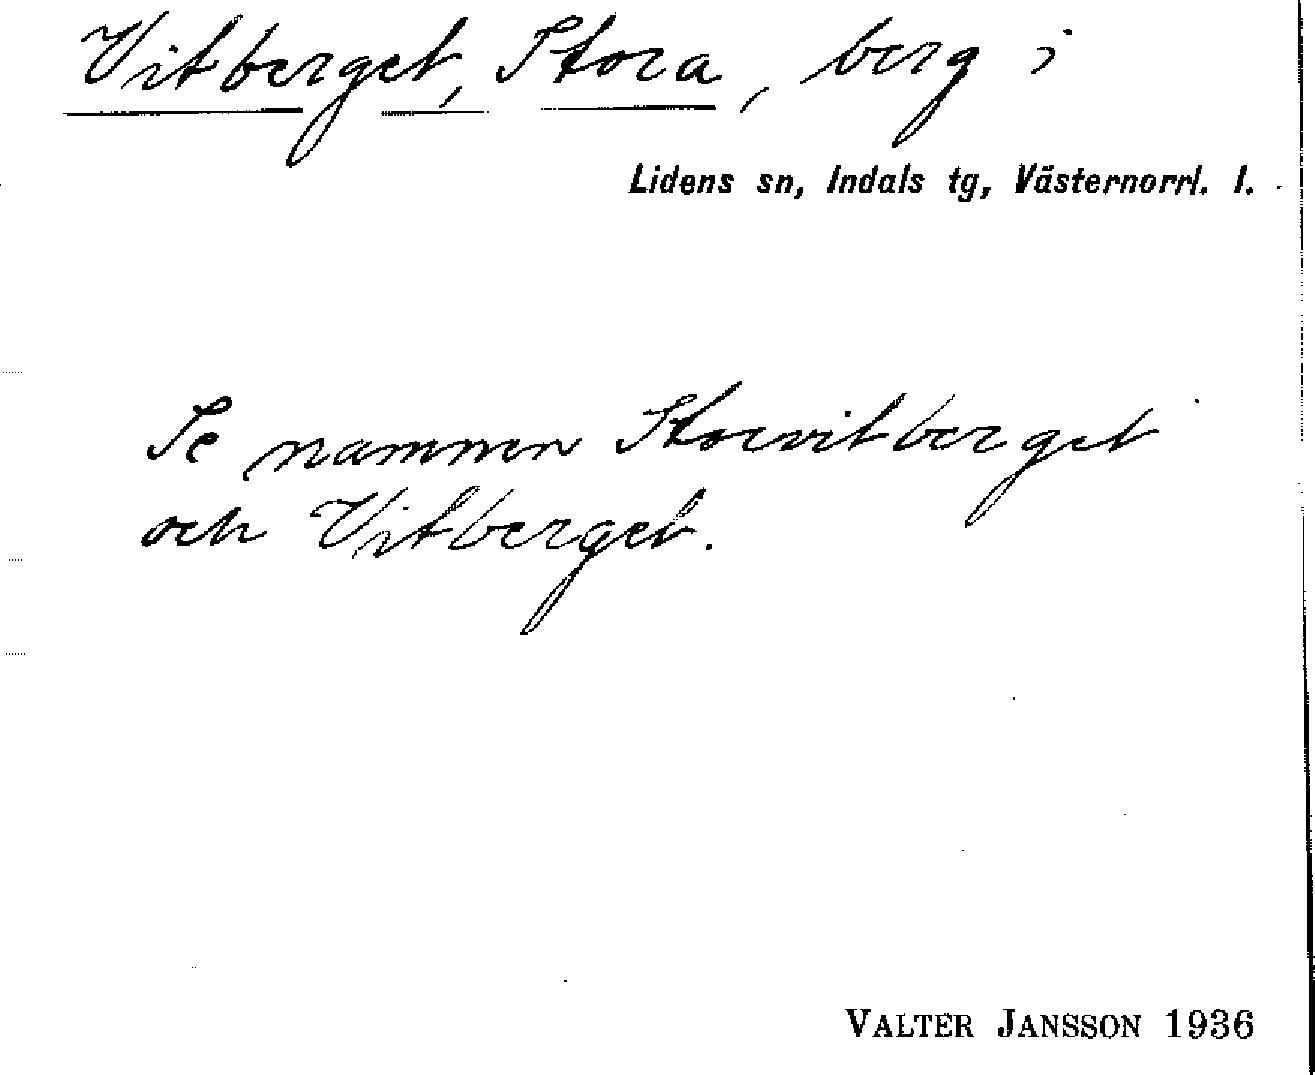 Vitberget, Stora, berg i
Lidens sn, Indals tg, Västernorrl. l.
Se namnen Storvitberget
och Vitberget.
VALTER JANSSON 1936